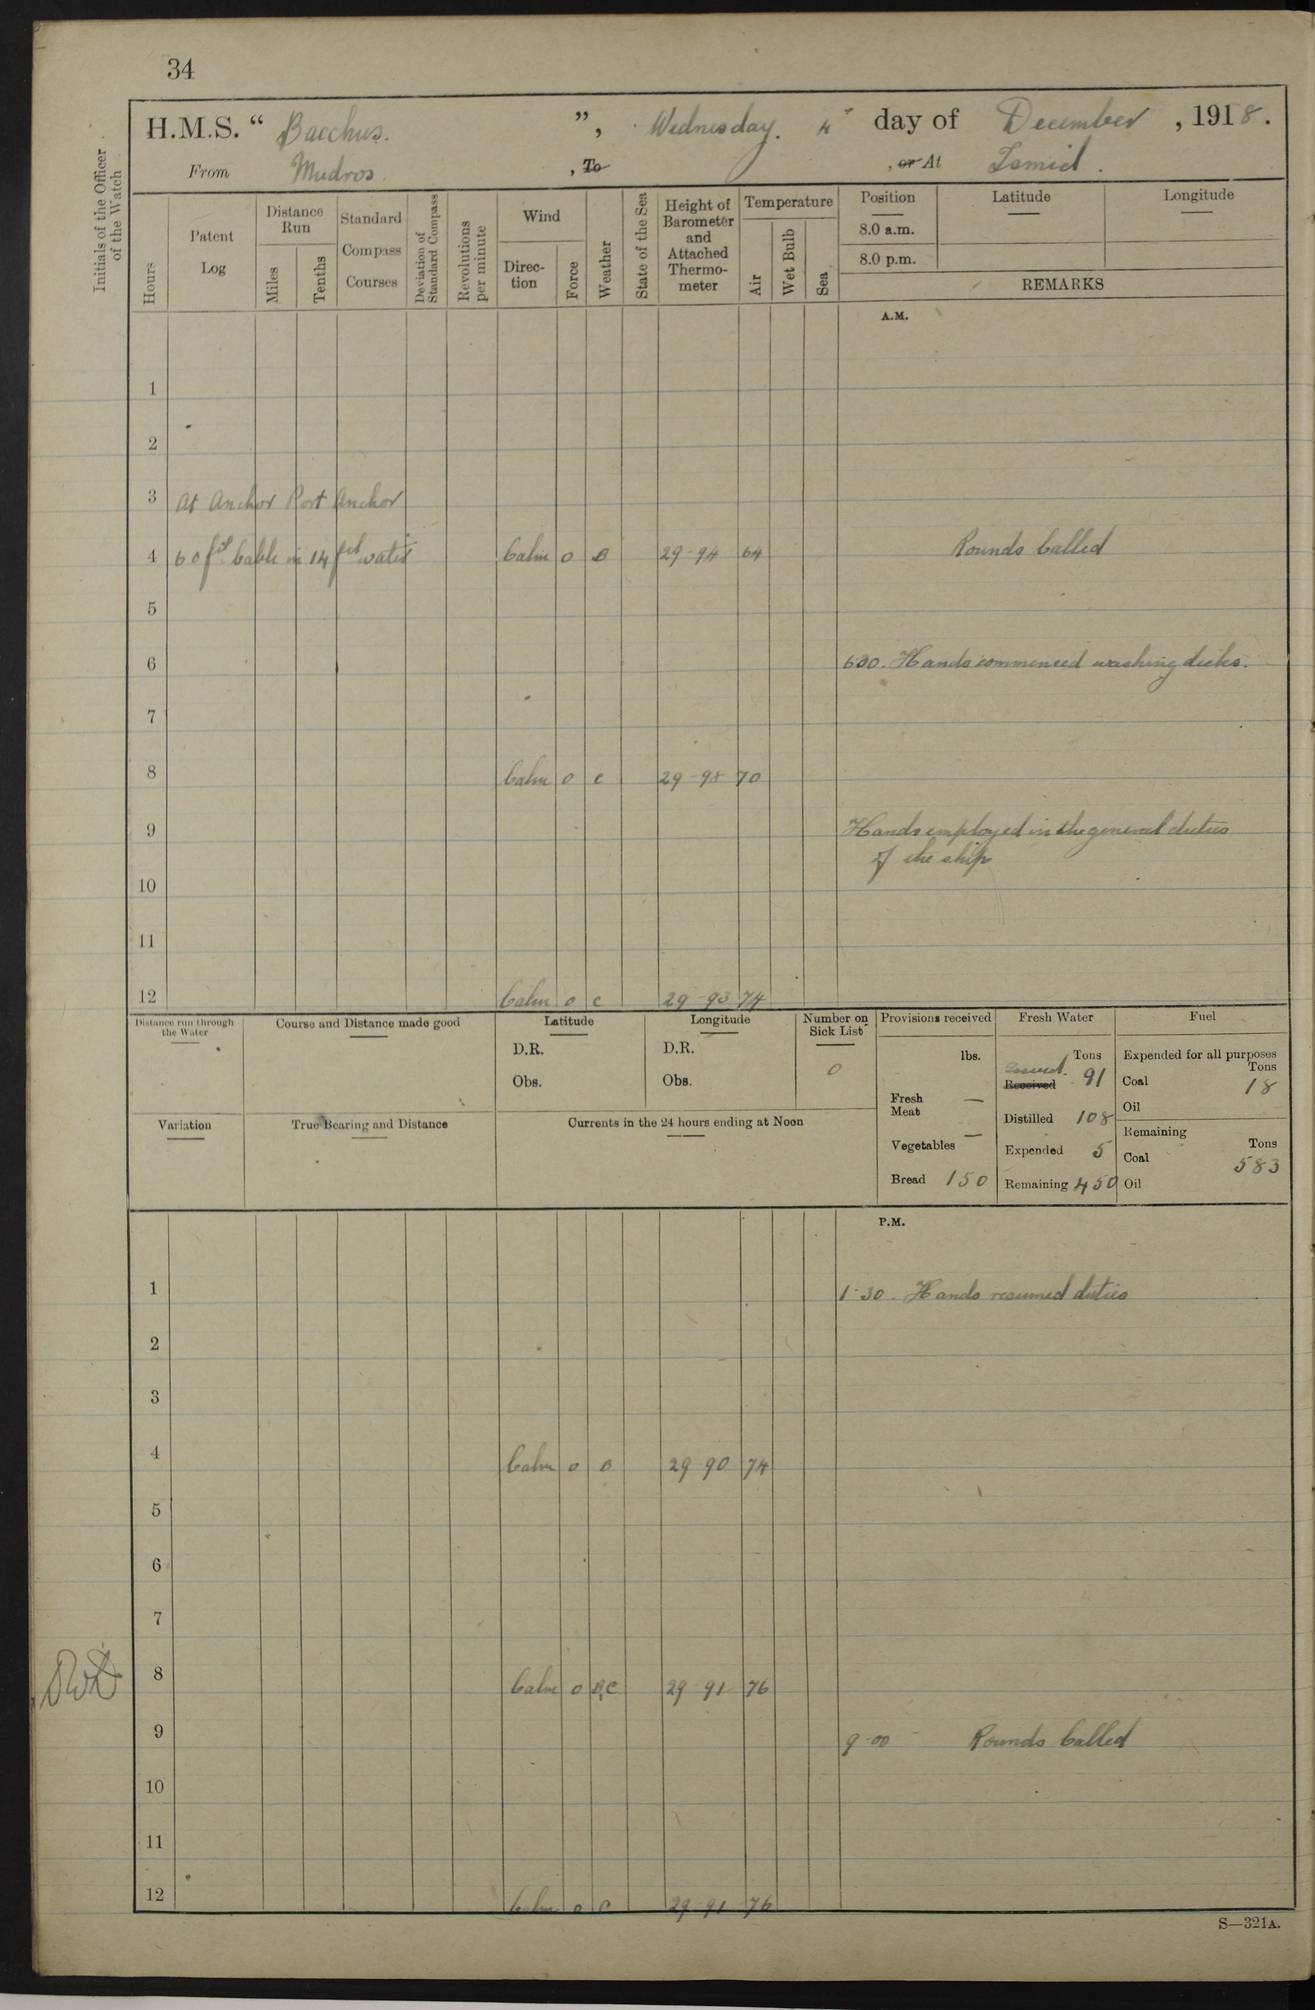 34
H.M.S. “ Bacchus. ”, Wednesday. 4th day of December , 1918.
From Mudros , To , or At Ismid .
Initials of the Officer of the Watch
Hours
Patent Log
Distance Run
Miles
Tenths
Standard Compass Courses
Deviation of Standard Compass
Revolutions per minute
Wind
Direc-tion
Force
Weather
State of the Sea
Height of Barometer and Attached Thermo-meter
Temperature
Air
Wet Bulb
Sea
Position Latitude Longitude
8.0 a.m.
8.0 p.m.
REMARKS
A.M.
1
2
3 At Anchor Port Anchor
4 60 fm Cable in 14 fm water Calm 0 B 29-94 64 Rounds Called
5
6 600. Hands commenced washing decks.
7
8 Calm 0 C 29-98 70
9 Hands employed in the general duties
of the ship
10
11
12 Calm 0 C 29-93 74
Distance run through the Water
Course and Distance made good
Latitude
D.R.
Obs.
Longitude
D.R.
Obs.
Number on Sick List
0
Variation
True Bearing and Distance
Currents in the 24 hours ending at Noon
Provisions received
lbs.
Fresh Meat —
Vegetables —
Bread 150
Fresh Water
Tons
Issued
Received 91
Distilled 108
Expended 5
Remaining 450
Fuel
Expended for all purposes
Tons
Coal 18
Oil
Remaining
Tons
Coal 583
Oil
P.M.
1 1-30. Hands resumed duties
2
3
4 Calm 0 B 29-90 74
5
6
7
8 Calm 0 B,C 29-91 76
9 9-00 - Rounds Called
10
11
12 Calm 0 C 29-91 76
S—321A.